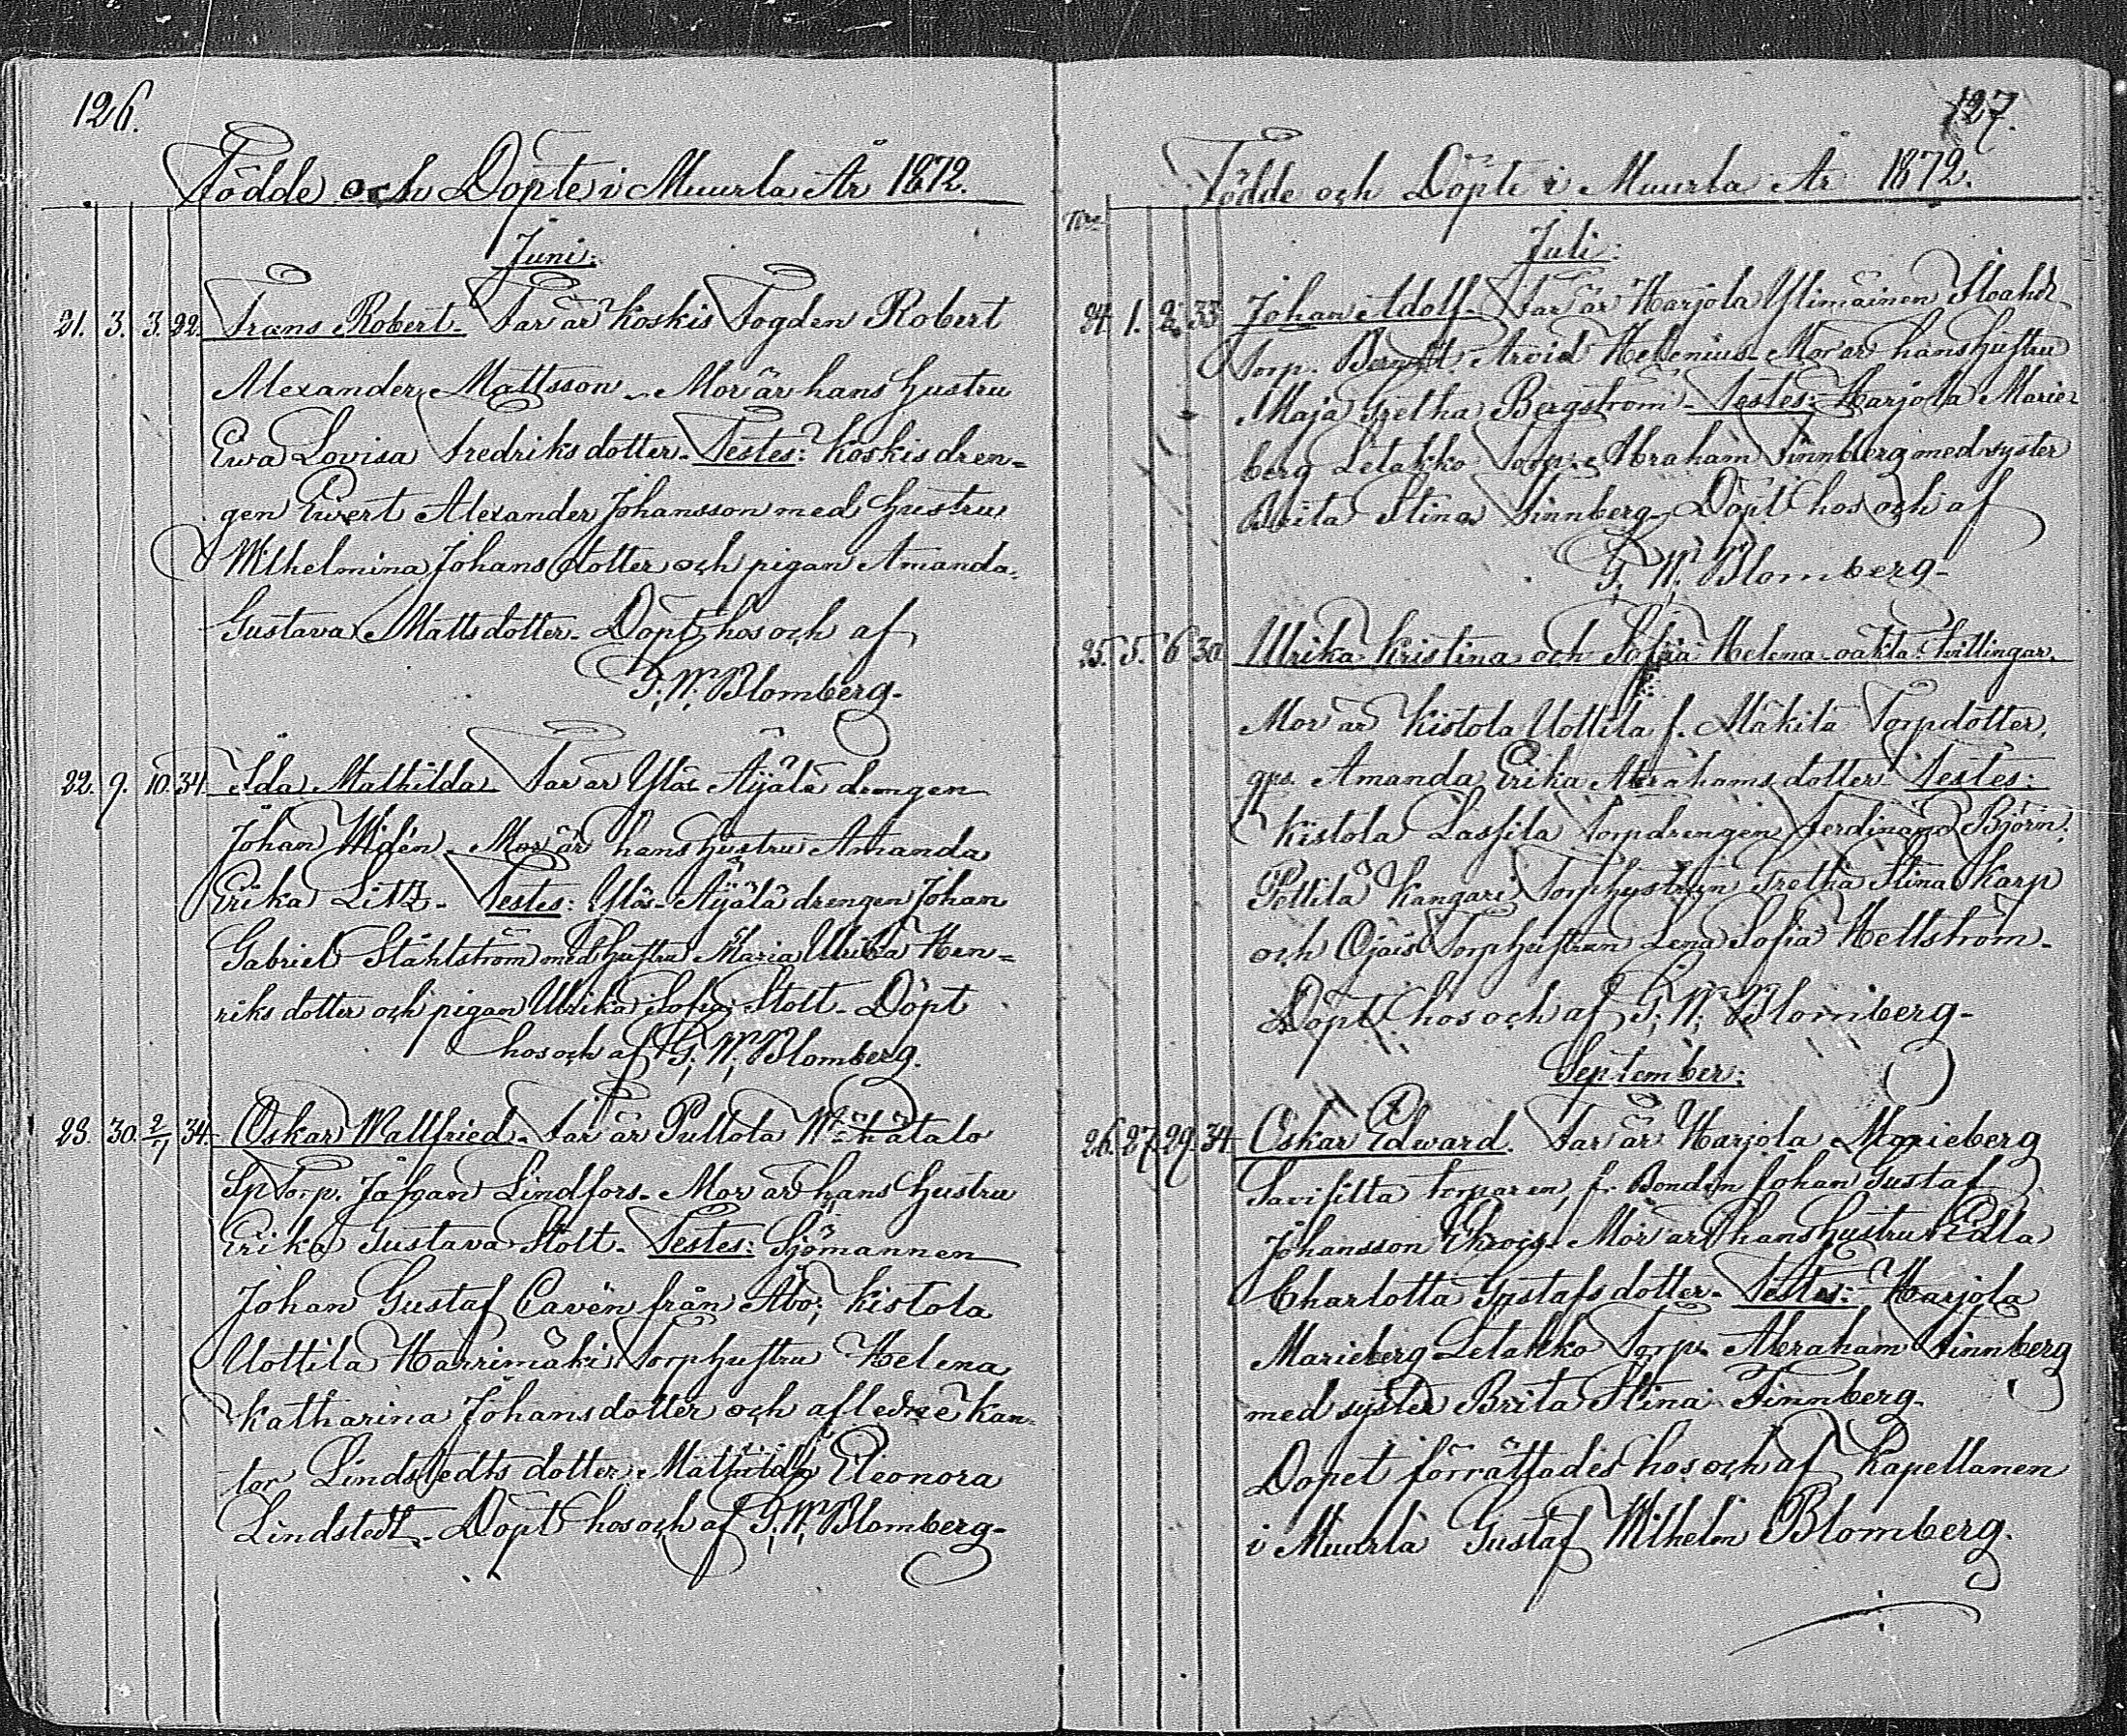 126.
Födde och Döpte i Muurla År 1872.
Juni:
21. 3. 3. 22. Frans Robert. Far är Koskis Fogden Robert
Alexander Mattsson. Mor är hans hustru
Ewa Lovisa Fredriksdotter. Testes: Koskis dren=
gen Ewert Alexander Johansson med hustru
Wilhelmina Johansdotter och pigan Amanda
Gustava Mattsdotter. Döpt hos och af
G. W. Blomberg.
22. 9. 10. 34. Ida Mathilda. Far är Yläs Äijälä drengen
Johan Widén. Mor är hans hustru Amanda
Erika Litz. Testes: Yläs Äijälä drengen Johan
Gabriel Ståhlström med hustru Maria Ulrika Hen=
riksdotter och pigan Ulrika Sofia Stolt. Döpt
hos och af G. W. Blomberg.
23. 30. 2/7 34. Oskar Wallfried. Far är Pullola Wähätalo
Sp Torp. Johan Lindfors. Mor är hans hustru
Erika Gustava Stolt. Testes: Sjömannen
Johan Gustaf Cavén från Åbo; Kistola
Uottila Harrimäki Torphustru Helena
Katharina Johansdotter och afledne Kan=
tor Lindstedts dotter Mathilda Eleonora
Lindstedt. Döpt hos och af G. W. Blomberg.
127.
Födde och Döpte i Muurla År 1872.
Juli:
24. 1. 2. 33. Johan Adolf. Far är Harjola Ylimäinen
Torp. Berndt Arvid Helenius. Mor är hans hustru
Maja Gretha Bergström. Testes: Harjola Marie=
berg Letakko Torp. Abraham Finnberg med syster
Brita Stina Finnberg. Döpt hos och af
G. W. Blomberg.
25. 5. 6. 30. Ulrika Kristina och Sofia Helena oäkta tvillingar.
Mor är Kistola Uottila f. Mäkilä Torpdotter,
qps. Amanda Erika Abrahamsdotter Testes:
Kistola Lassila Torpdrengen Ferdinand Björn.
Pettilä Kangari Torphustrun Gretha Stina Karp
och Ojais Torphustrun Lena Sofia Hellström.
Döpt hos och af G. W. Blomberg.
September:
26. 27. 29. 34. Oskar Edward. Far är Harjola Marieberg
Savisilta torparen, f. Bonden Johan Gustaf
Johansson Mor är hans hustru Edla
Charlotta Gustafsdotter. Testes: Harjola
Marieberg Letakko Torp. Abraham Finnberg
med syster Brita Stina Finnberg.
Dopet förrättades hos och af Kapellanen
i Muurla Gustaf Wilhelm Blomberg.